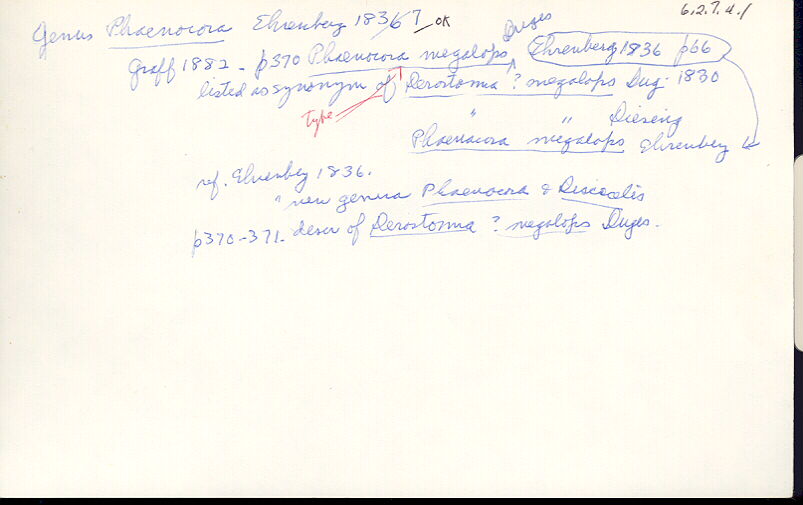 6.2.7.d.1
Genus Phaenocora Ehrenberg 1836/7 OK
Duges
Graff 1882 - p370 Phaenocora megalops, Ehrenberg 1836 p66
listed as synonym of Derostoma ? megalops Dug. 1830
type
" " Diesing
Phaenocora megalops Ehrenberg
ref. Ehrenberg 1836.
" new genera Phaenocora & Discocelis
p370-371. descr of Derostoma ? megalops Duges.